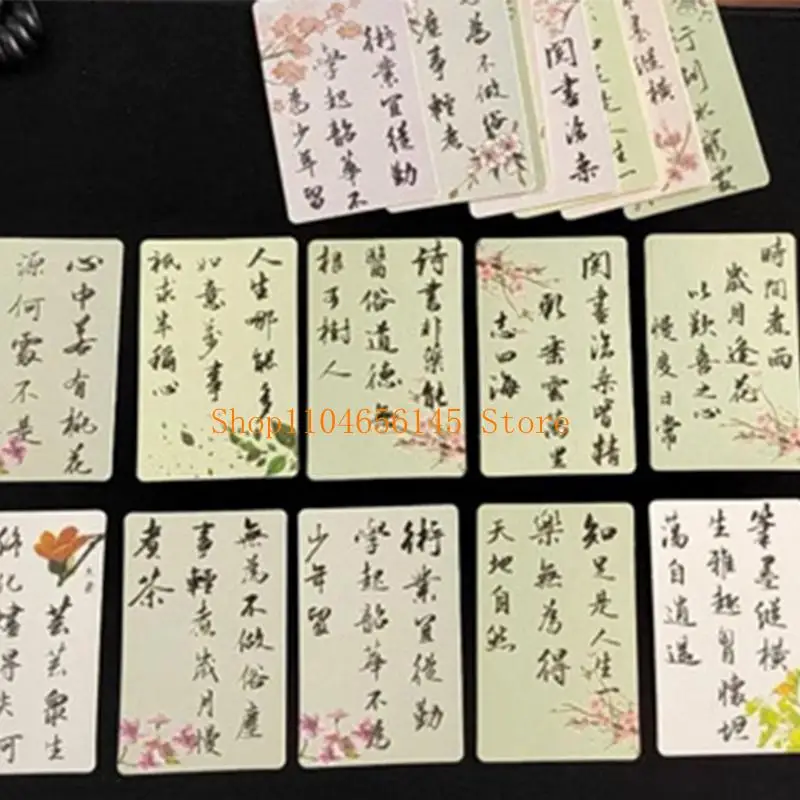 術業宜從勤
學起韶華不
為少年留
為不做俗
塵事輕煮
閱書法
足是人生一
墨縱橫
行到水窮
心中若有桃花
源何處不是
人生哪能多
如意萬事
祇求半稱心
詩書非藥能
醫俗道德無
根可樹人
閱書法桑皆精
乘雲萬里
志四海
時間煮雨
歲月逢花
以歡喜之心
慢度日常
Shop1104656145 Store
芸芸眾生
無為不做俗塵
事輕煮歲月慢
煮茶
術業宜從勤
學起韶華不為
少年留
知足是人生一
樂無為得
天地自然
筆墨縱橫
生雅趣胸懷坦
蕩自逍遙